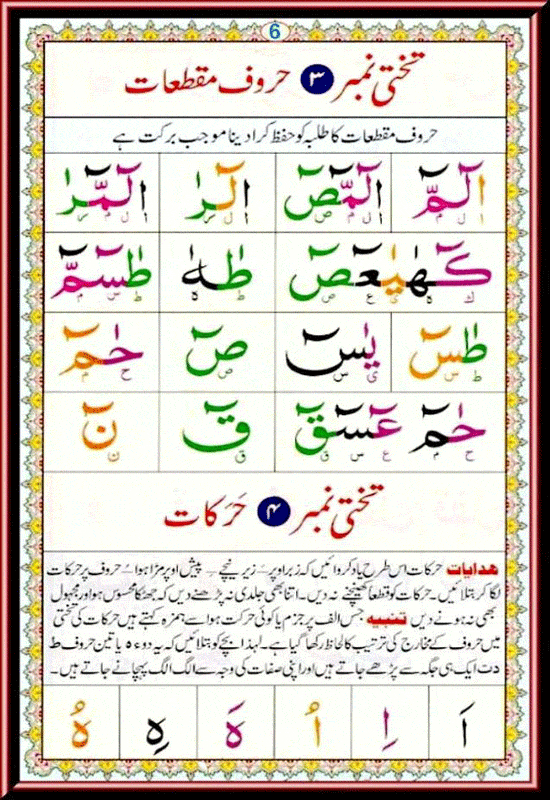 6
تختی نمبر ۳ حروف مقطعات
حروف مقطعات کا طلبہ کو حفظ کرا دینا موجب برکت ہے
الٓمّٓ الٓمّٓصٓ الٓرٰ الٓمّٓرٰ
ا ل م ا ل م ص ا ل ر ا ل م ر
كٓهٰيٰعٓصٓ طٰهٰ طٰسٓمّٓ
ك ه ي ع ص ط ه ط س م
طٰسٓ يٰسٓ صٓ حٰمٓ
ط س ي س ص ح م
حٰمٓ عٓسٓقٓ قٓ نٓ
ح م ع س ق ق ن
تختی نمبر ۴ حَرَکات
ھدایات حرکات اس طرح یاد کروائیں کہ زبر اوپر ــَـ زیر نیچے ــِـ پیش اوپر مڑا ہوا ــُـ حروف پر حرکات
لگا کر بتلائیں۔ حرکات کو قطعاً کھینچنے نہ دیں۔ اتنا بھی جلدی نہ پڑھنے دیں کہ جھٹکا محسوس ہو اور مجہول
بھی نہ ہونے دیں تنبیہ جس الف پر جزم یا کوئی حرکت ہو اسے ہمزہ کہتے ہیں حرکات کی تختی
میں حروف کے مخارج کی ترتیب کا لحاظ رکھا گیا ہے۔ لہذا بچے کو بتلائیں کہ یہ دو ء ہ یا تین حروف ط
د ت ایک ہی جگہ سے پڑھے جاتے ہیں اور اپنی صفات کی وجہ سے الگ الگ پہچانے جاتے ہیں۔
اَ اِ اُ هَ هِ هُ